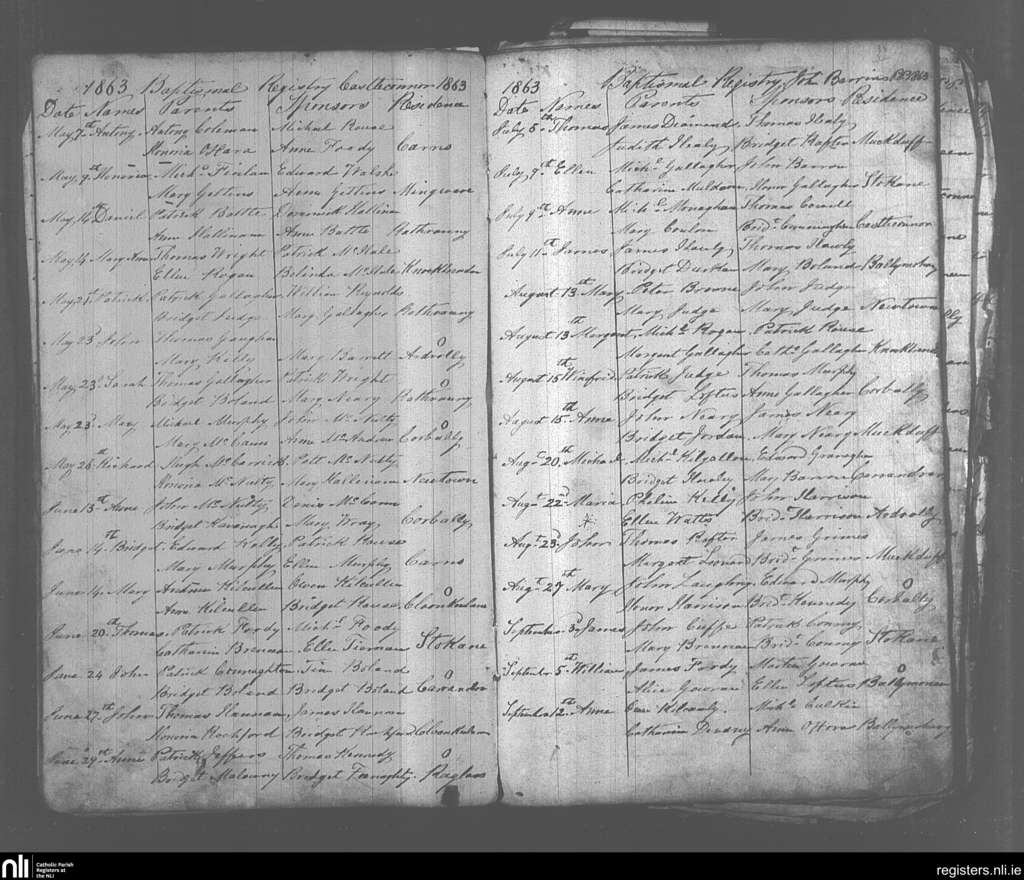 1863 Baptismal Registry Castleconnor 1863
Date Names Parents Sponsors Residence
May 7th Antony Antony Coleman Michael Rouse
Honoria O'Hara Anne Foody Carns
May 9th Honoria Michl Finlan Edward Walsh
Mary Gettins Anne Gettins
May 14th Daniel Patrick Battle Dominick Hallinan
Ann Hallinan Anne Battle
May 14 Mary Ann Thomas Wright Patrick McHale
Ellen Hogan Belinda McHale
May 21st Patrick Patrick Gallagher William Reynolds
Bridget Judge Mary Gallagher
May 23d John Thomas Gaughan
Mary Kelly Mary Barrett Ardvolly
May 23d Sarah Thomas Gallagher Patrick Wright
Bridget Boland Mary Neary
May 23d Mary Michael Murphy John McNulty
Mary McCawn Anne McAndrew Corbally
May 26th Richard Hugh McCarrick Patt McNulty
Honoria McNulty Mary Hallinan Newtown
June 13th Anne John McNulty Denis McCann
Bridget Kavanagh Mary Wray Corbally
June 14 Bridget Edward Kelly Patrick Rouse
Mary Murphy Ellen Murphy Carns
June 14 Mary Andrew Kilcullen Owen Kilcullen
Anne Kilcullen Bridget Rouse
June 20th Thomas Patrick Foody Michl Foody
Catharine Brennan Ellen Tiernan Stokane
June 24 John Patrick Connaghton Tim Boland
Bridget Boland Bridget Boland
June 27th John Thomas Hannan James Hannan
Honoria Rochford Bridget
June 29th Anne Patrick Jeffers Thomas Kennedy
Bridget Bridget Fenaghty
1863 Baptismal Registry 1863
Date Names Parents Sponsors Residence
July 5th Thomas James Diamond Thomas Healy
Judith Healy Bridget Rafter Muckduff
July 9th Ellen Michl Gallagher John Barron
Catharine Muldoon Honor Gallagher Stokane
July 9th Anne Michl Monaghan Thomas
Mary Conlon Bridt Cunningham Castleconnor
July 11th James James Healy Thomas Healy
Bridget Durkan Mary Boland
August 13th Mary Peter Browne John Judge
Mary Judge Mary Judge Newtown
August 13th Margaret Michl Hogan Patrick Rouse
Margaret Gallagher Cathe Gallagher
August 15th Winifred Patrick Judge Thomas Murphy
Bridget Loftus Anne Gallagher Corbally
August 15th Anne John Neary James Neary
Bridget Jordan Mary Neary Muckduff
Augt 20th Michael Michl Kilgallon Edward
Bridget Healy Mary
Augt 22nd Maria Kelly John Harrison
Ellen Watts Bridt Harrison Ardvolly
Augt 23d John Thomas Rafter James Grimes
Margaret Leonard Bridt Grimes Muckduff
Augt 27th Mary John Edward Murphy
Honor Harrison Bridt Kennedy Corbally
September 3d James John Cuffe Patrick Conroy
Mary Brennan Bridt Conroy Stokane
September 5th William James Foody Martin
Alice Ellen Loftus
September 12th Anne Michl Culkin
Catharine Anne O'Hora
nli Catholic Parish Registers at the NLI
registers.nli.ie